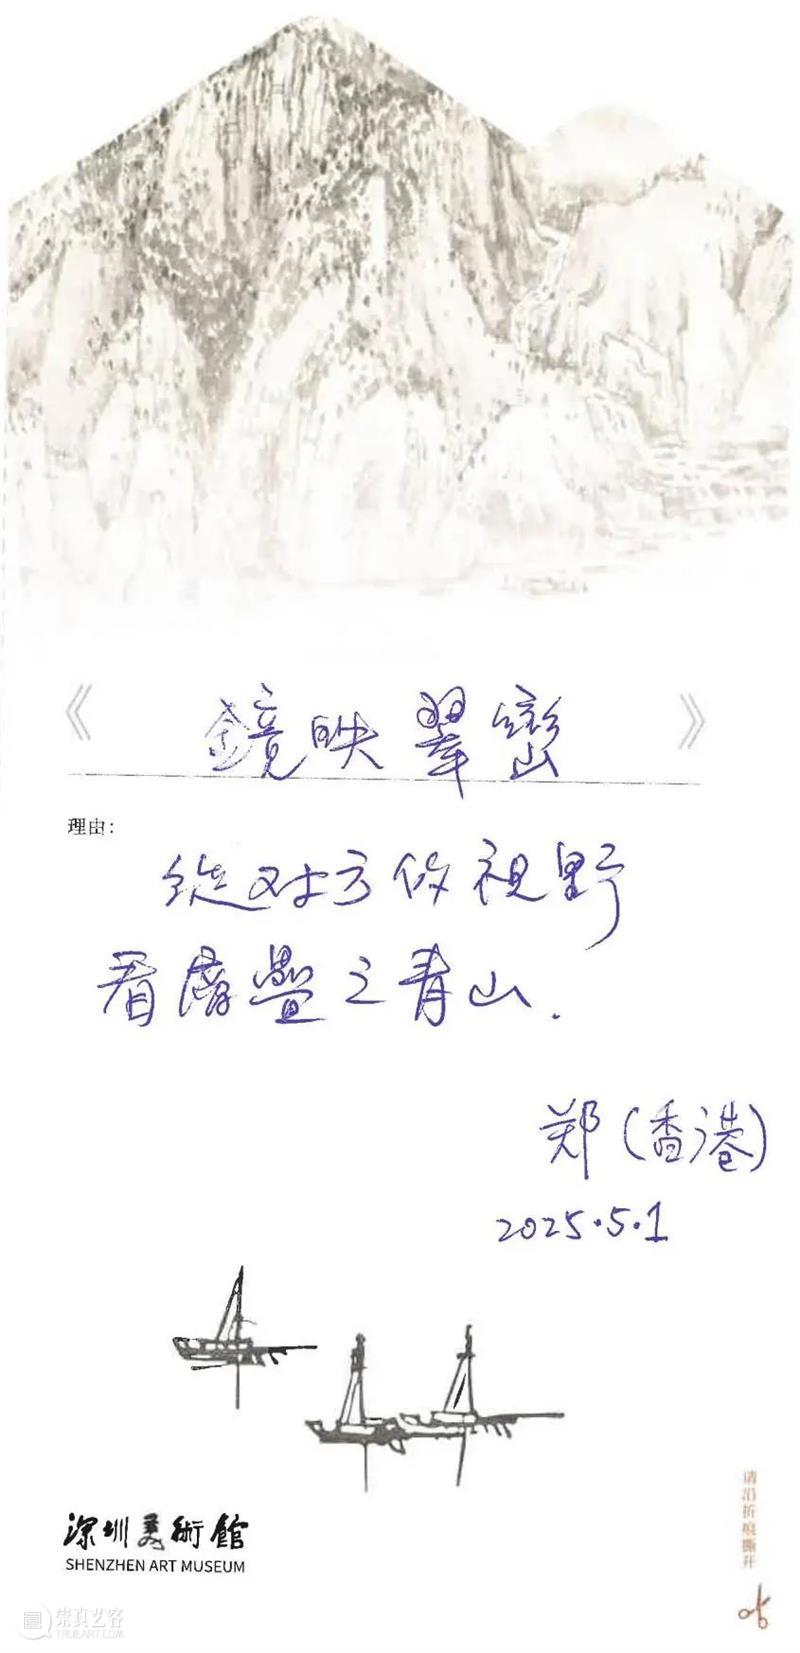 《鏡映翠巒》
理由:
從对方的視野
看層疊之青山.
郑(香港)
2025.5.1
请沿折痕撕开
深圳美術館
SHENZHEN ART MUSEUM
崇真艺客
TRUEART.COM